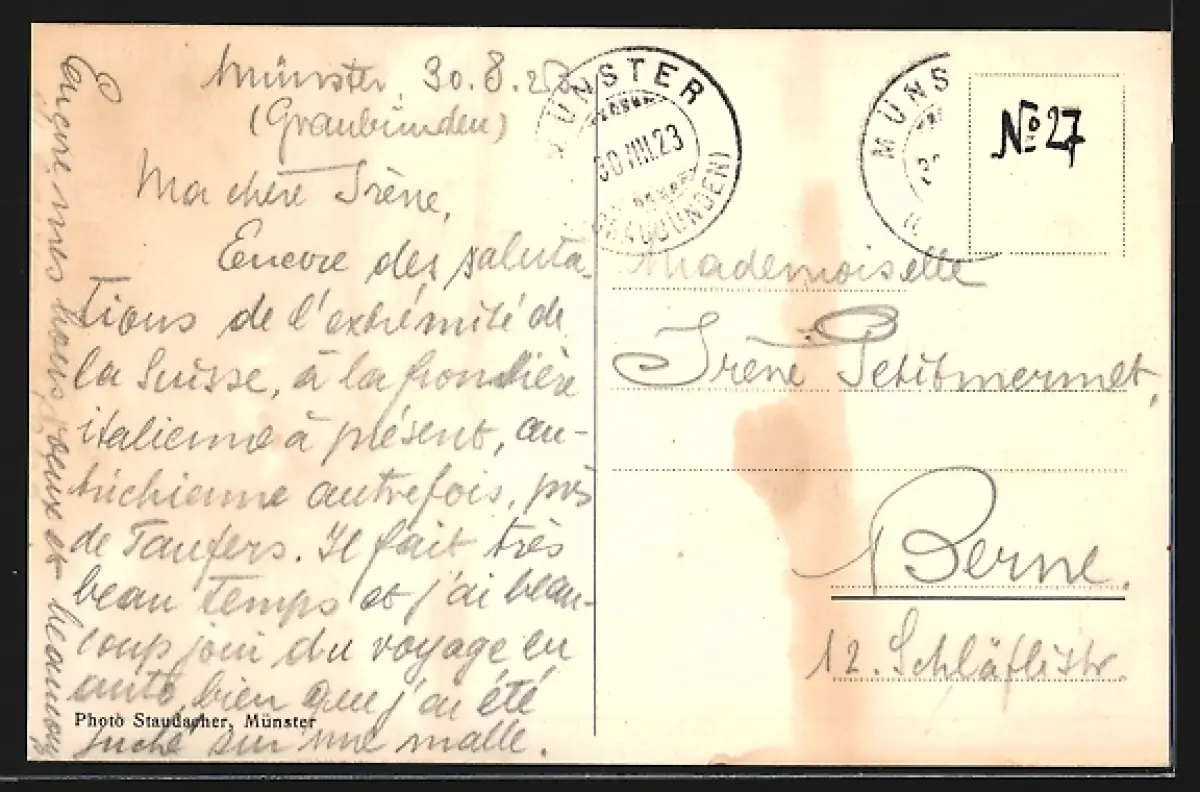 Münster, 30.8.23
(Graubünden)
Ma chère Irène,
Encore des saluta-
tions de l'extrémité de
la Suisse, à la frontière
italienne à présent, au-
trichienne autrefois, près
de Taufers. Il fait très
beau temps et j'ai beau-
coup joui du voyage en
auto, bien que j'ai été
juché sur une malle.
Encore mes bons vœux et
Photo Staudacher, Münster
MÜNSTER
30.VIII.23
(GRAUBÜNDEN)
MÜNS
No 27
Mademoiselle
Irène Petitmermet,
Berne.
12. Schläflistr.